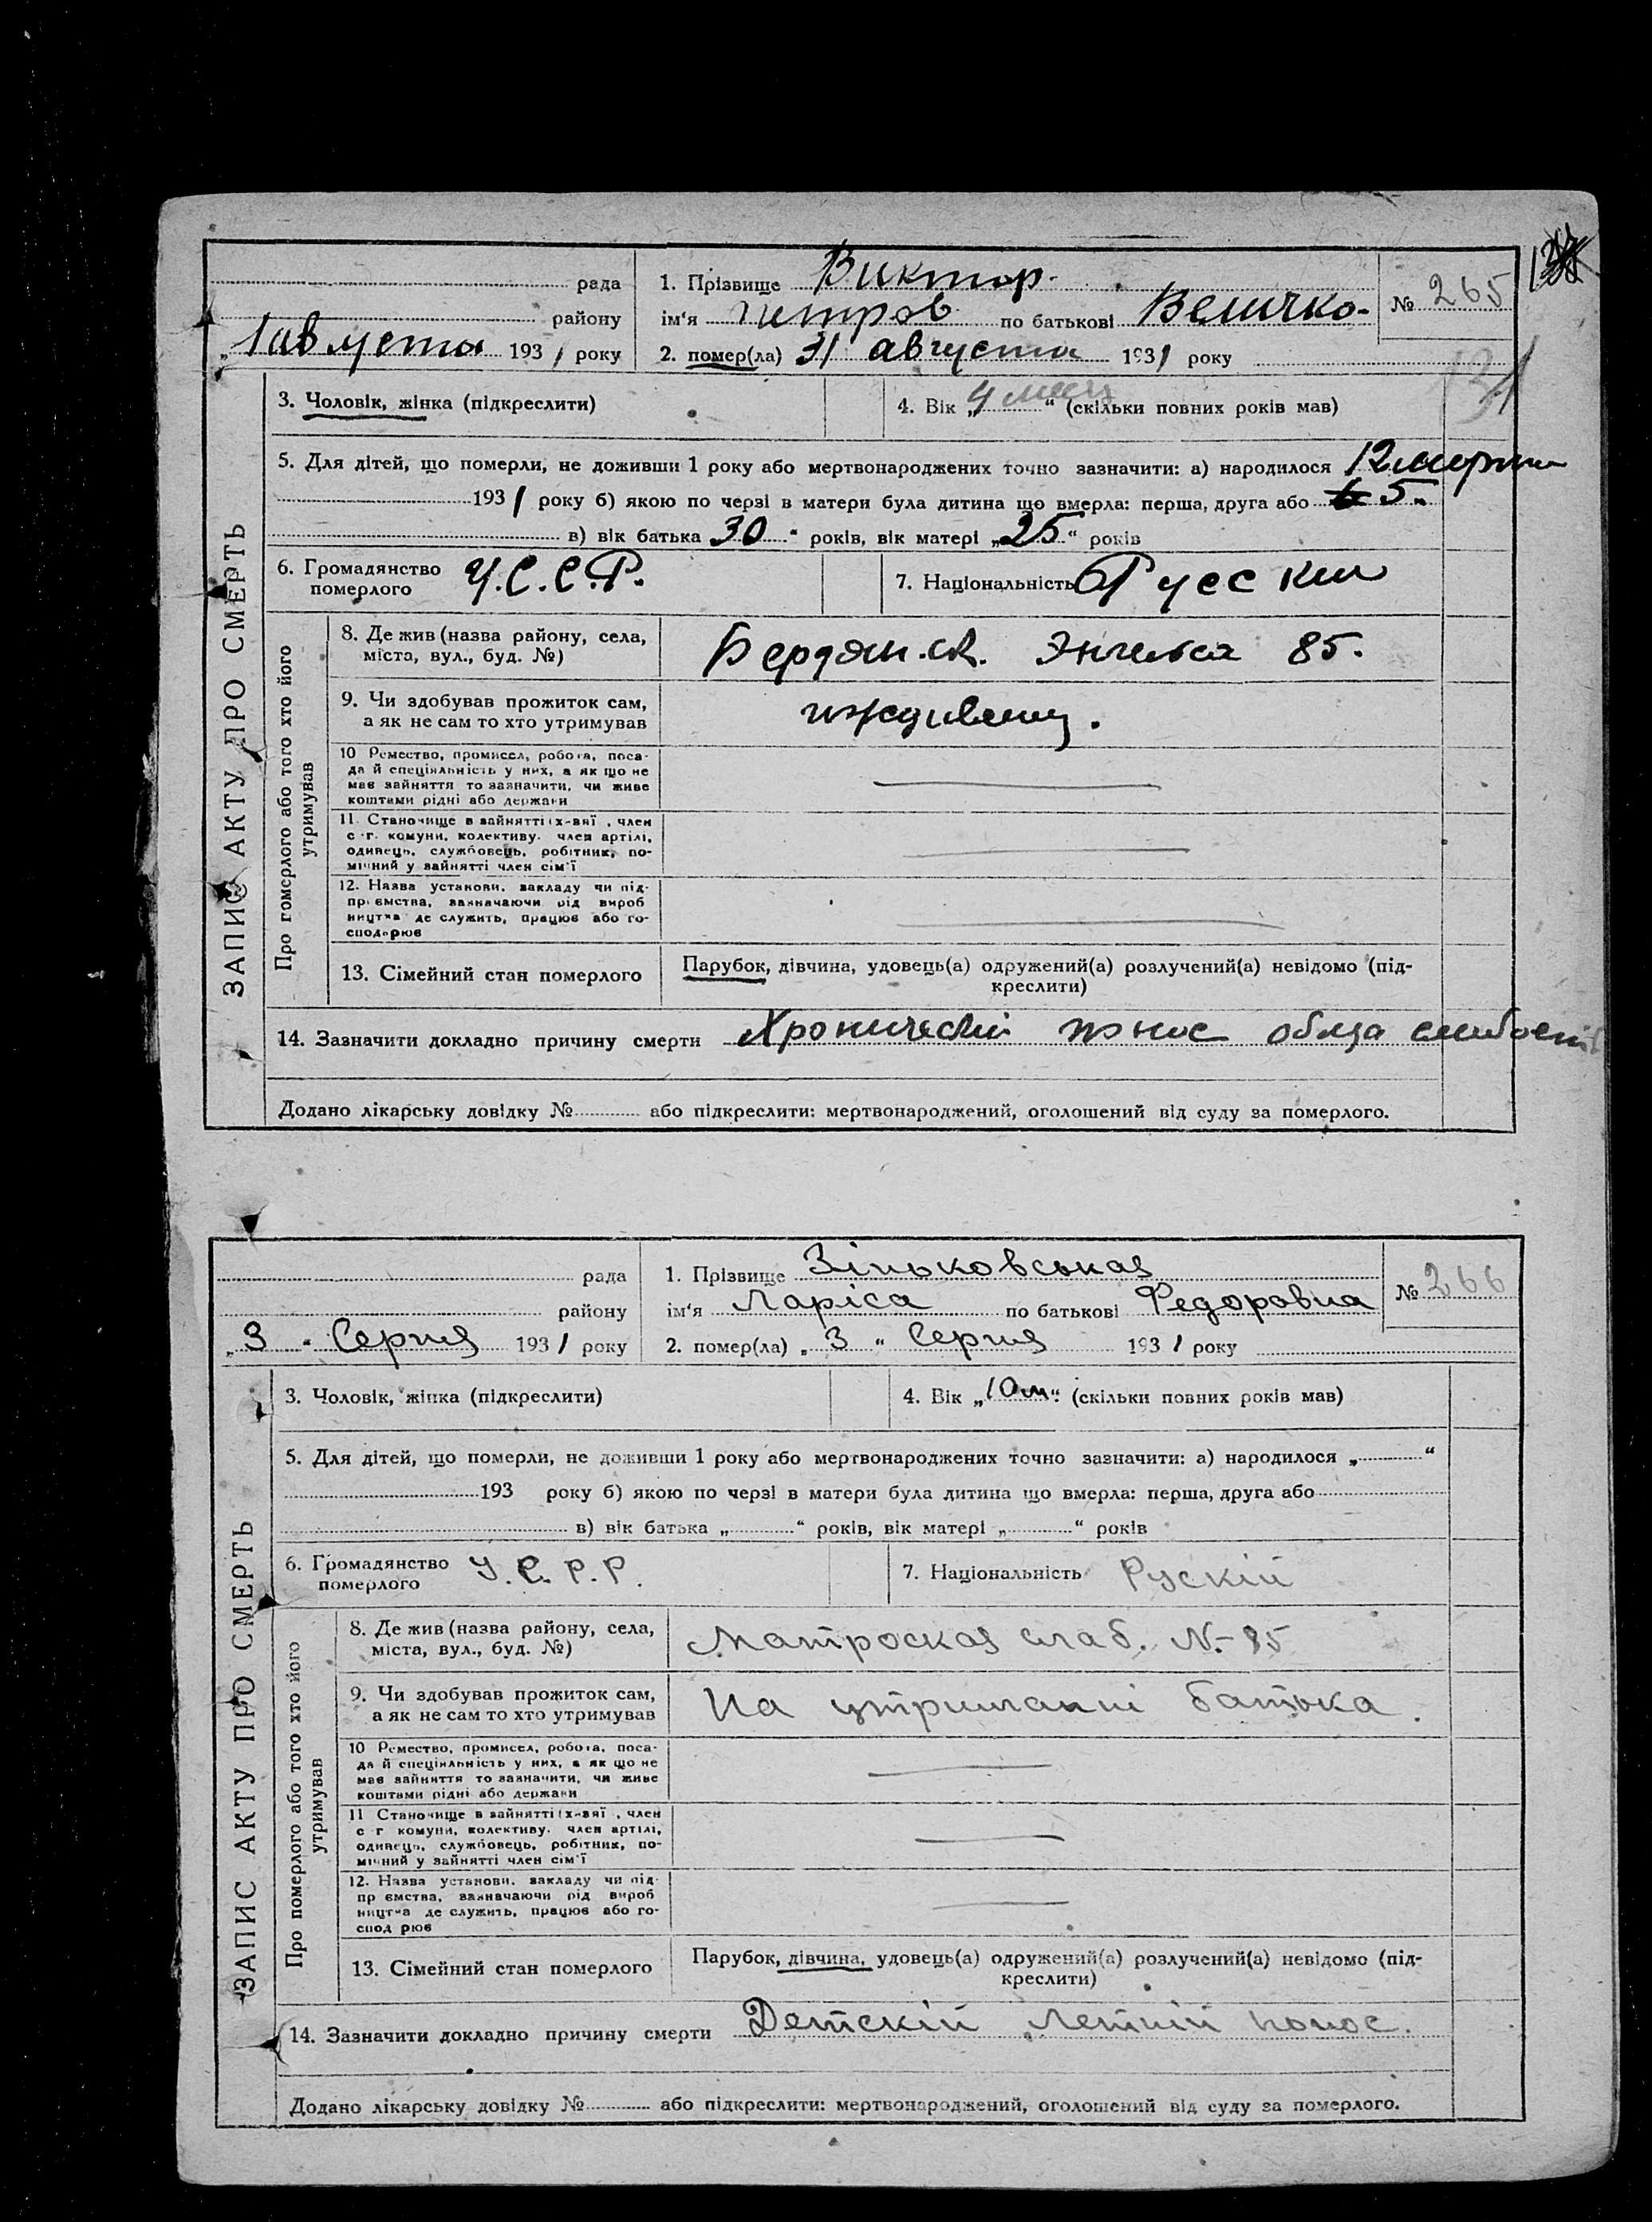 рада
району
1 августа 1931 року
1. Прізвище Виктор
ім'я Петров по батькові Величко
№ 265
2. помер(ла) 31 августа 1931 року
131
3. Чоловік, жінка (підкреслити)
4. Вік „4 месяц“ (скільки повних років мав)
5. Для дітей, що померли, не доживши 1 року або мертвонароджених точно зазначити: а) народилося 12 марта
1931 року б) якою по черзі в матери була дитина що вмерла: перша, друга або 5
в) вік батька 30“ років, вік матері „25“ років
6. Громадянство померлого У.С.С.Р.
7. Національність Русский
ЗАПИС АКТУ ПРО СМЕРТЬ
Про померлого або того хто його утримував
8. Де жив (назва району, села,
міста, вул., буд. №)
Бердянск. Энгельса 85.
9. Чи здобував прожиток сам,
а як не сам то хто утримував
иждивенец.
10 Ремество, промисел, робота, поса-
да й спеціяльність у них, а як що не
має зайняття то зазначити, чи живе
коштами рідні або держави
11. Становище в зайнятті , член
с.-г. комуни, колективу. член артілі,
одинець, службовець, робітник, по-
мічний у зайнятті член сім'ї
12. Назва установи, закладу чи під-
приємства, зазначаючи рід вироб
ництва де служить, працює або го-
сподарює
13. Сімейний стан померлого
Парубок, дівчина, удовець(а) одружений(а) розлучений(а) невідомо (під-
креслити)
14. Зазначити докладно причину смерти Хронический понос обща слабость
Додано лікарську довідку № або підкреслити: мертвонароджений, оголошений від суду за померлого.
рада
району
„3“ Серпня 1931 року
1. Прізвище Зіньковськая
ім'я Лариса по батькові Федоровна
№ 266
2. помер(ла) „3“ Серпня 1931 року
3. Чоловік, жінка (підкреслити)
4. Вік „10 м“ (скільки повних років мав)
5. Для дітей, що померли, не доживши 1 року або мертвонароджених точно зазначити: а) народилося „ “
193 року б) якою по черзі в матери була дитина що вмерла: перша, друга або
в) вік батька „ “ років, вік матері „ “ років
6. Громадянство померлого У.С.Р.Р.
7. Національність Рускій
ЗАПИС АКТУ ПРО СМЕРТЬ
Про померлого або того хто його утримував
8. Де жив (назва району, села,
міста, вул., буд. №)
Матроская слаб. N-85
9. Чи здобував прожиток сам,
а як не сам то хто утримував
На утриманні батька.
10 Ремество, промисел, робота, поса-
да й спеціяльність у них, а як що не
має зайняття то зазначити, чи живе
коштами рідні або держави
11 Становище в зайнятті , член
с г комуни, колективу. член артілі,
одинець, службовець, робітник, по-
мічний у зайнятті член сім'ї
12. Назва установи, закладу чи під-
приємства, зазначаючи рід вироб
ництва де служить, працює або го-
сподарює
13. Сімейний стан померлого
Парубок, дівчина, удовець(а) одружений(а) розлучений(а) невідомо (під-
креслити)
14. Зазначити докладно причину смерти Детскій летний понос.
Додано лікарську довідку № або підкреслити: мертвонароджений, оголошений від суду за померлого.